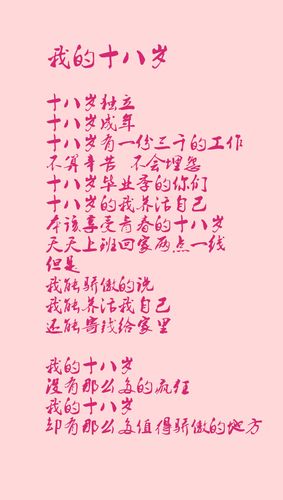 我的十八岁
十八岁独立
十八岁成年
十八岁有一份三千的工作
不算辛苦 不会埋怨
十八岁毕业季的你们
十八岁的我养活自己
本该享受青春的十八岁
天天上班回家两点一线
但是
我能骄傲的说
我能养活我自己
还能寄钱给家里
我的十八岁
没有那么多的疯狂
我的十八岁
却有那么多值得骄傲的地方